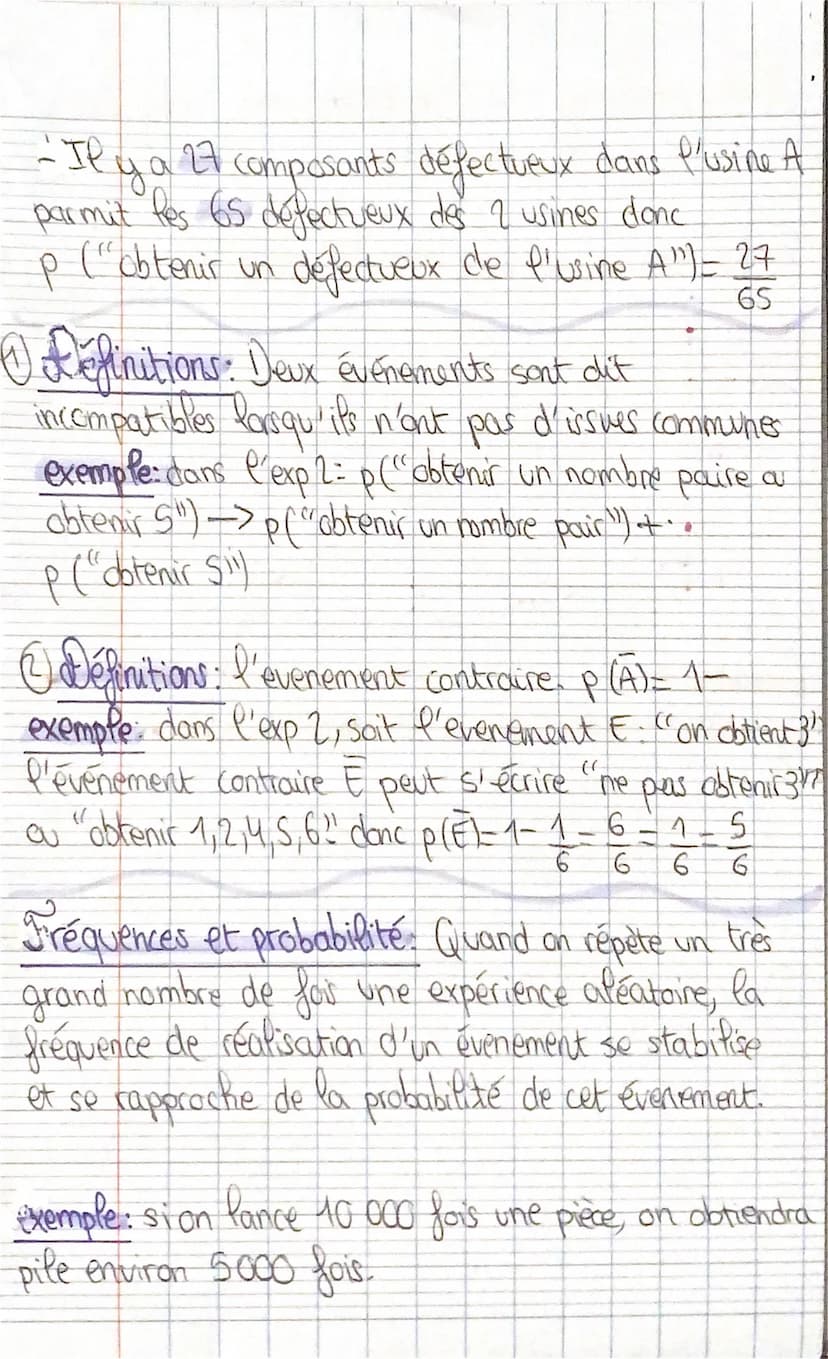 - Il y a 27 composants défectueux dans l'usine A
parmit les 65 défectueux des 2 usines donc
p ("obtenir un défectueux de l'usine A") = 27/65
① Définitions: Deux événements sont dit
incompatibles lorsqu'ils n'ont pas d'issues communes
exemple: dans l'exp 2 = p("obtenir un nombre paire ou
obtenir 5") -> p("obtenir un nombre pair") +
p("obtenir 5")
② Définitions: l'evenement contraire. p(Ā) = 1-
exemple: dans l'exp 2, soit l'evenement E: "on obtient 3"
l'événement contraire Ē peut s'écrire "ne pas obtenir 3"
ou "obtenir 1,2,4,5,6" donc p(Ē) = 1 - 1/6 = 6/6 = 1/6 = 5/6
Fréquences et probabilité: Quand on répète un très
grand nombre de fois une expérience aléatoire, la
fréquence de réalisation d'un évenement se stabilise
et se rapproche de la probabilité de cet évenement.
exemple: si on lance 10 000 fois une pièce, on obtiendra
pile environ 5000 fois.